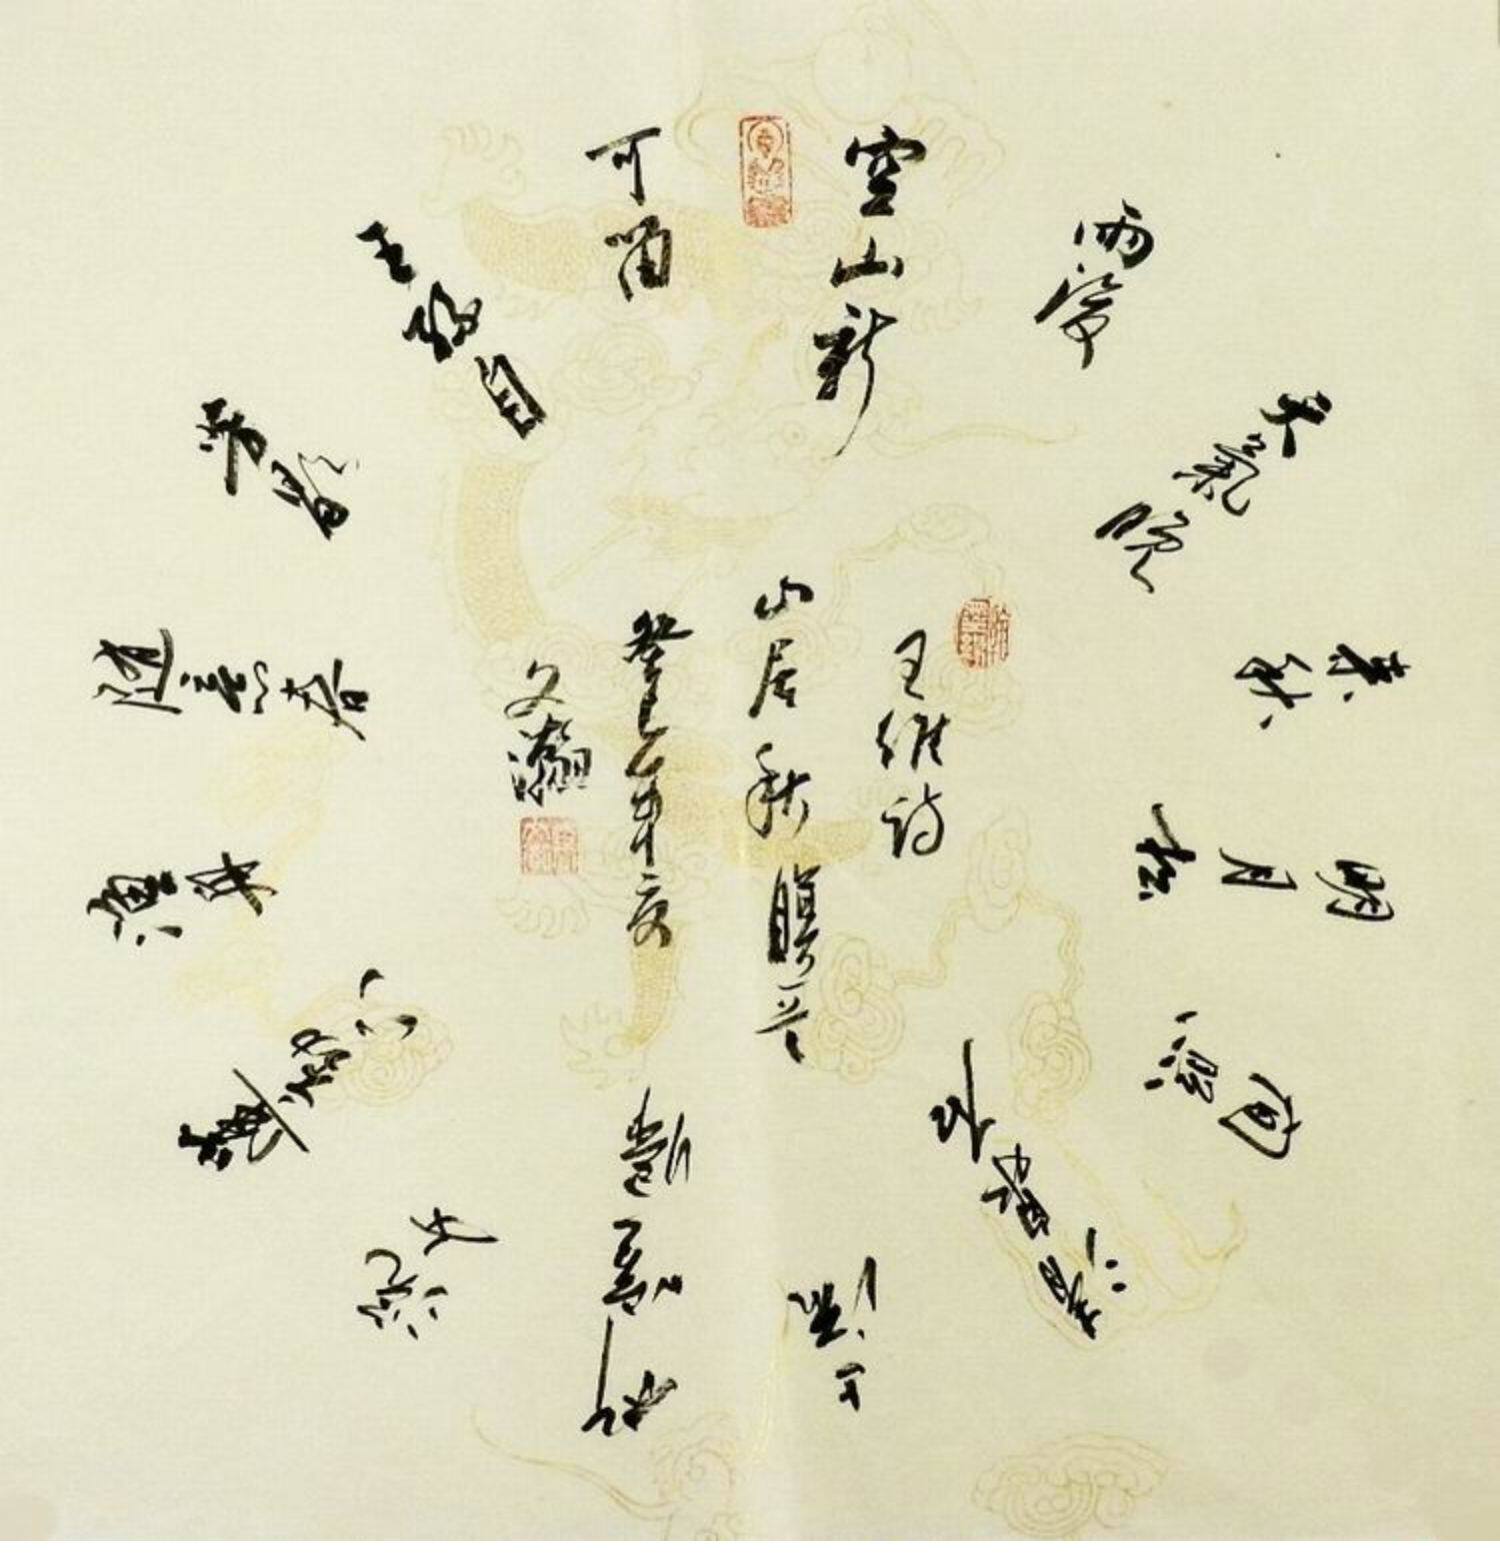 空山新
雨後
天氣晚
来秋
明月松
间照
清泉石
上流
竹喧歸
浣女
蓮動下
漁舟
随意春
芳歇
王孫自
可留
王维诗
山居秋暝一首
癸巳年夏
文瀚